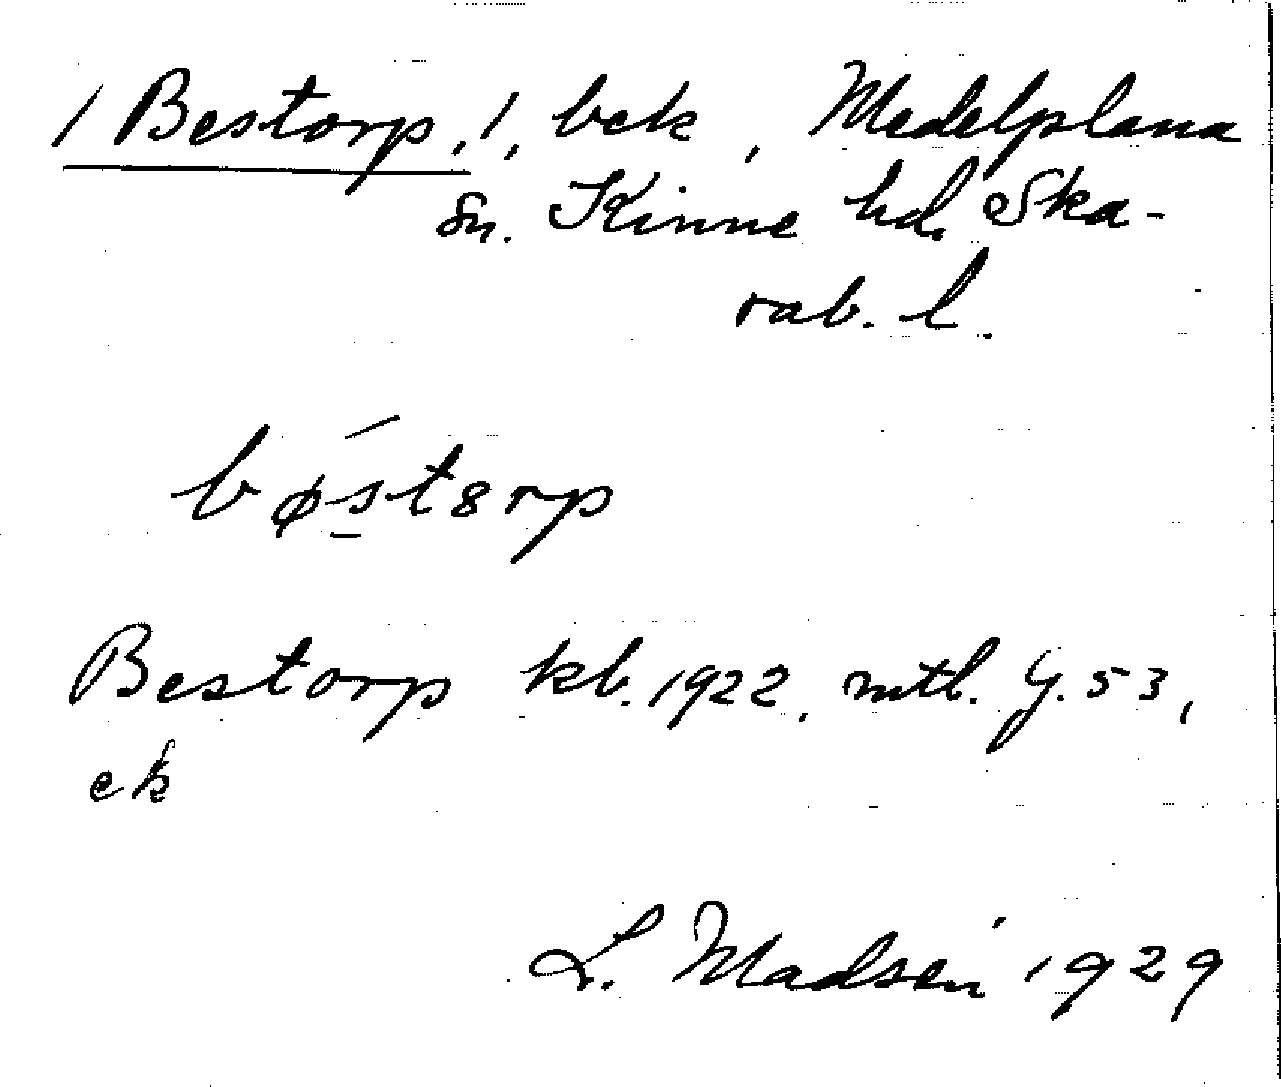 1 Bestorp, 1, bek, Medelplana
sn. Kinne hd. Ska-
rab. l.
bǿsts̱8rp
Bestorp kb. 1922, mtl. G. 53,
ek
L. Madsén 1929